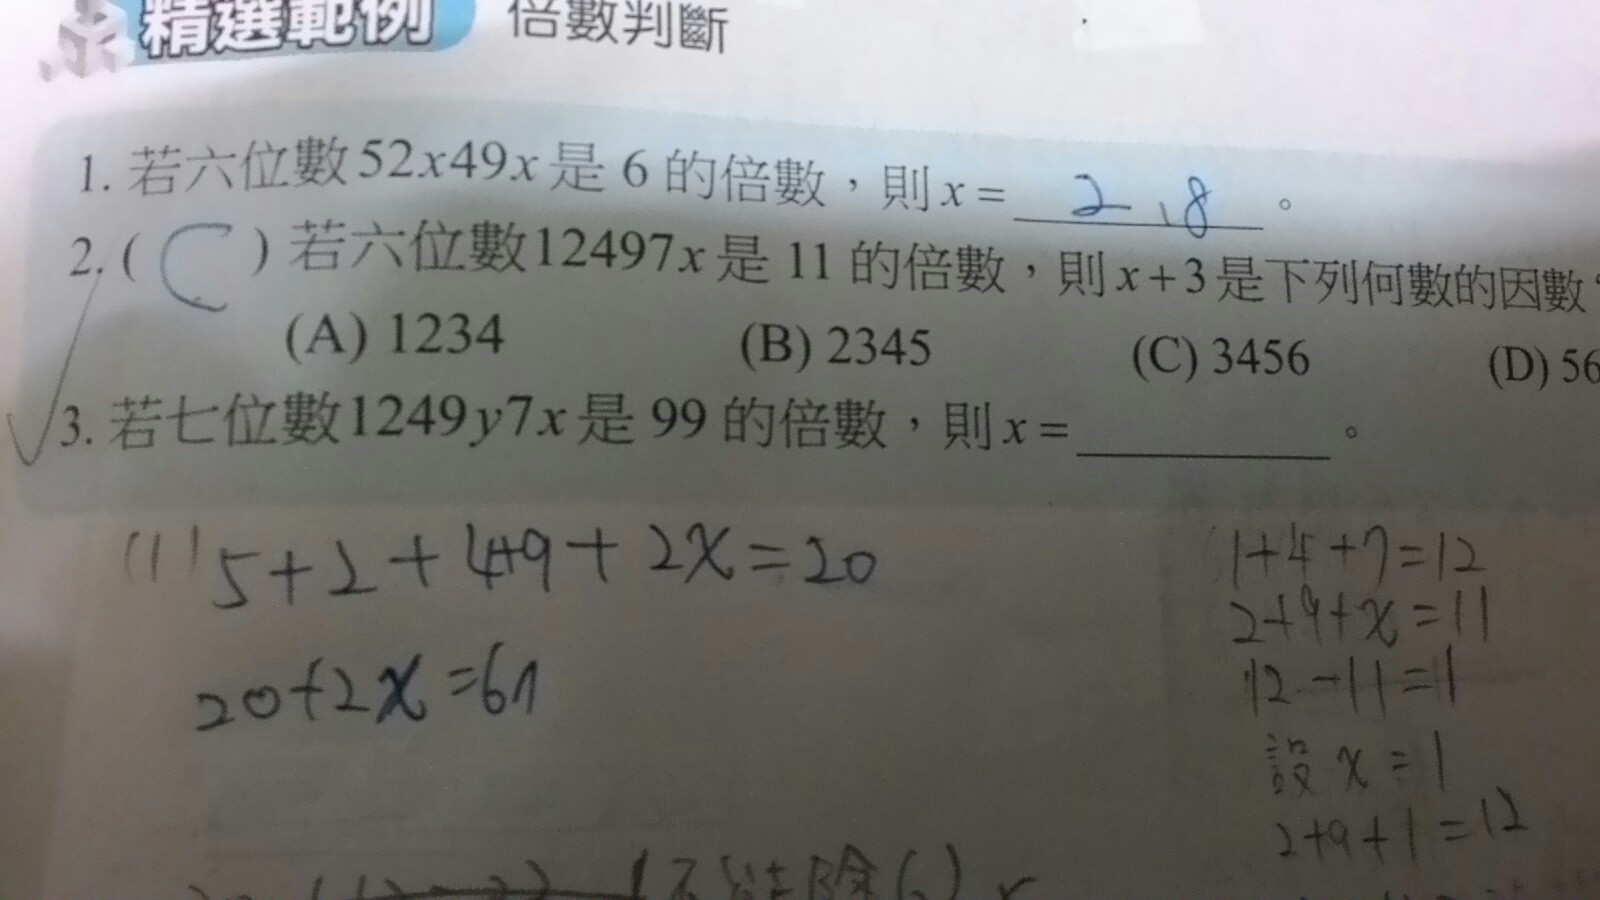 精選範例 倍數判斷
1. 若六位數52x49x是 6 的倍數，則x= 2、8 。
2. ( C ) 若六位數12497x是 11 的倍數，則x+3是下列何數的因數
(A) 1234 (B) 2345 (C) 3456 (D) 56
3. 若七位數1249y7x是 99 的倍數，則x= 。
(1) 5+2+4+9+2x=20
20+2x=6n
1+4+7=12
2+9+x=11
12-11=1
設 x=1
2+9+1=12